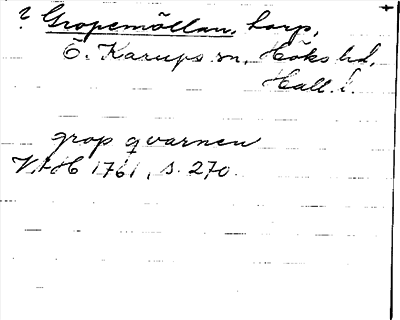 ? Gropemöllan, torp,
Ö. Karups sn, Höks hd,
Hall. l.
grop qvarnen
1761, s. 270.